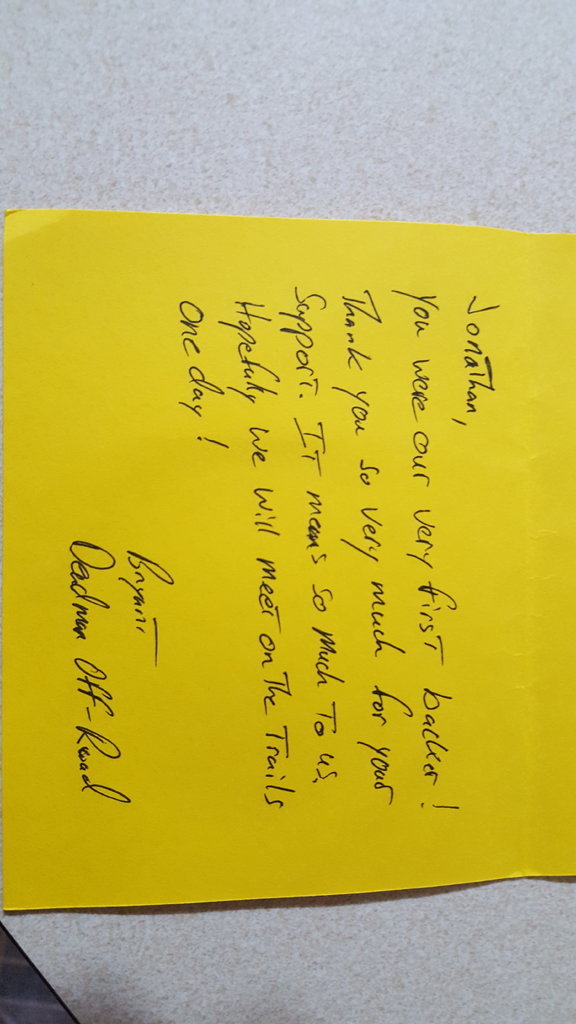 Jonathan,
You were our very first backer!
Thank you so very much for your
support. It means so much to us.
Hopefully we will meet on the trails
one day!
Bryant
Deadman Off-Road